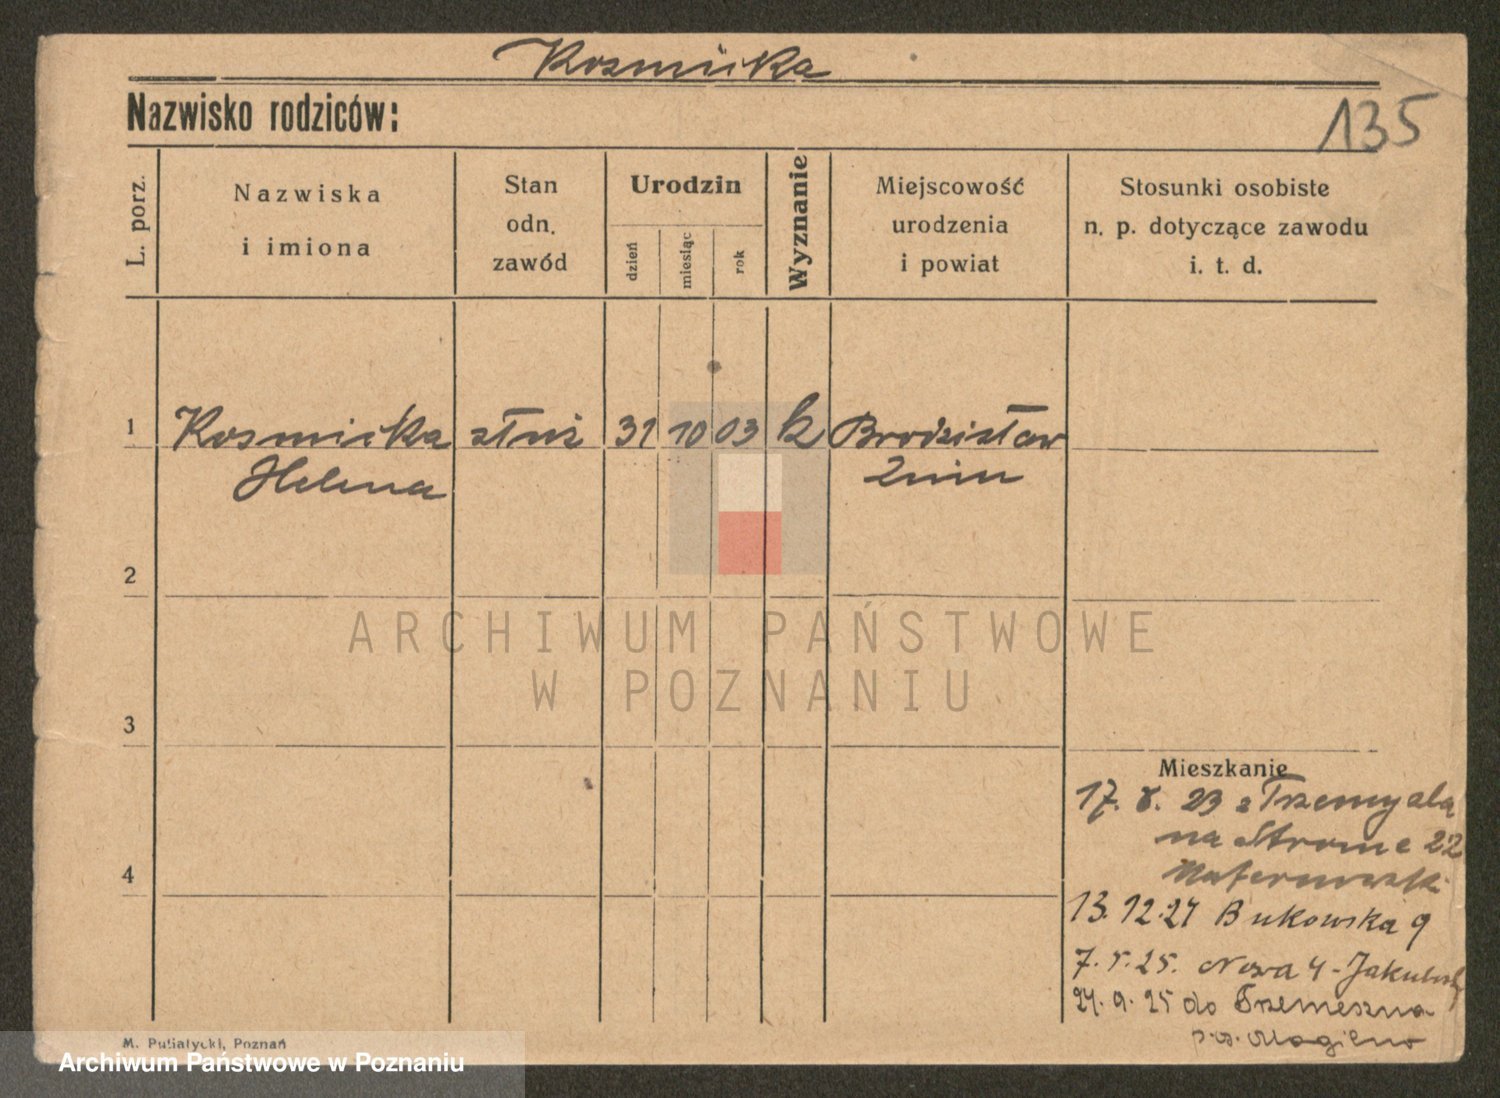 Kosmicka
Nazwisko rodziców:
135
L. porz.
Nazwiska
i imiona
Stan
odn.
zawód
Urodzin
dzień
miesiąc
rok
Wyznanie
Miejscowość
urodzenia
i powiat
Stosunki osobiste
n. p. dotyczące zawodu
i. t. d.
1 Kosmicka służ 31 10 03 k Brodzisław
Helena Żnin
2
ARCHIWUM PAŃSTWOWE
W POZNANIU
3
Mieszkanie
17. 8. 23 z Trzemyzla
na Strome 22
4
13. 12. 24 Bukowska 9
7. 5. 25. Nowa 4 -
24. 9. 25 do Trzemeszna
Mogilno
M. Pusiatycki, Poznań
Archiwum Państwowe w Poznaniu